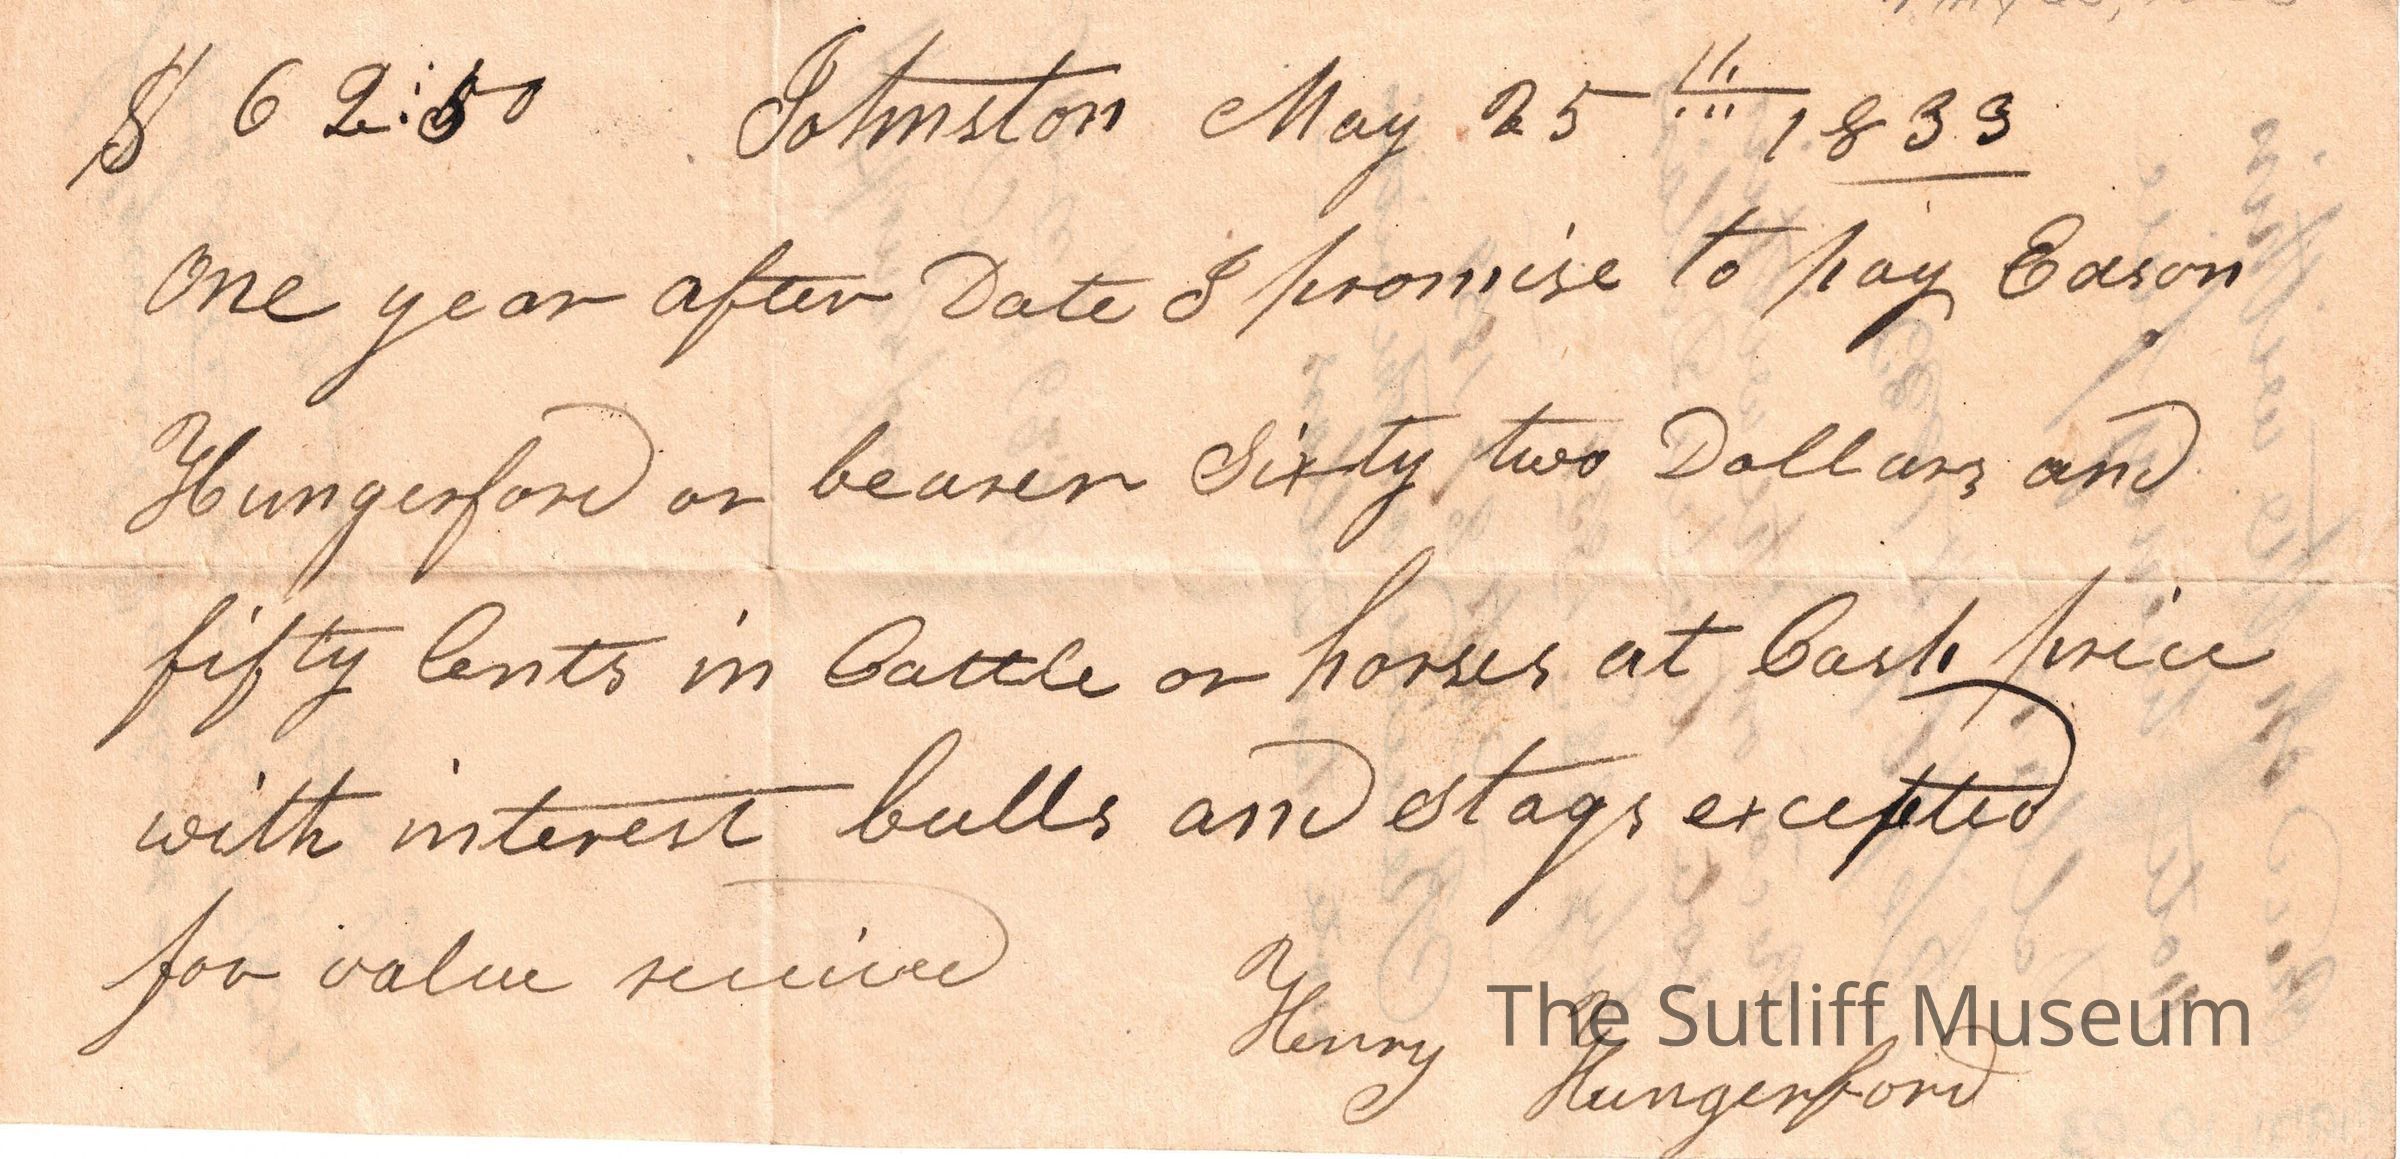 $ 62:50 Johnston May 25th 1833
One year after Date I promise to pay Edson
Hungerford or bearer Sixty two Dollars and
fifty Cents in Cattle or horses at Cash price
with interest bulls and stags excepted
for value received
Henry Hungerford
The Sutliff Museum